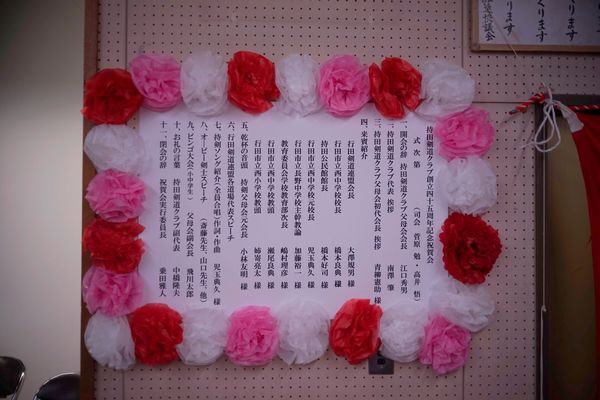 持田剣道クラブ創立四十五周年記念祝賀会
式次第 （司会 菅原 勉・高井 悟）
一、開会の辞 持田剣道クラブ父母会会長 江口秀男
二、持田剣道クラブ代表 挨拶 南澤 肇
三、持田剣道クラブ父母会初代会長 挨拶 青柳憲助 様
四、来賓紹介
行田剣道連盟会長 大澤規男 様
行田市立西中学校校長 橋本良典 様
持田公民館館長 橋本好司 様
行田市立西中学校元校長 児玉典久 様
行田市立長野中学校主幹教諭 加藤裕一 様
教育委員会学校教育部次長 嶋村理彦 様
行田市立西中学校教頭 瀬尾良典 様
行田市立西小学校教頭 姉嵜亮太 様
五、乾杯の音頭 持剣父母会元会長 小林友明 様
六、行田剣道連盟各道場代表スピーチ
七、持剣ソング紹介（全員合唱）作詞・作曲 児玉典久 様
八、オービー剣士スピーチ （斎藤先生、山口先生、他）
九、ビンゴ大会（小中学生） 父母会副会長 飛川太郎
十、お礼の言葉 持田剣道クラブ副代表 中橋隆夫
十一、閉会の辞 祝賀会実行委員長 乗田雅人
くります
ります
協議会